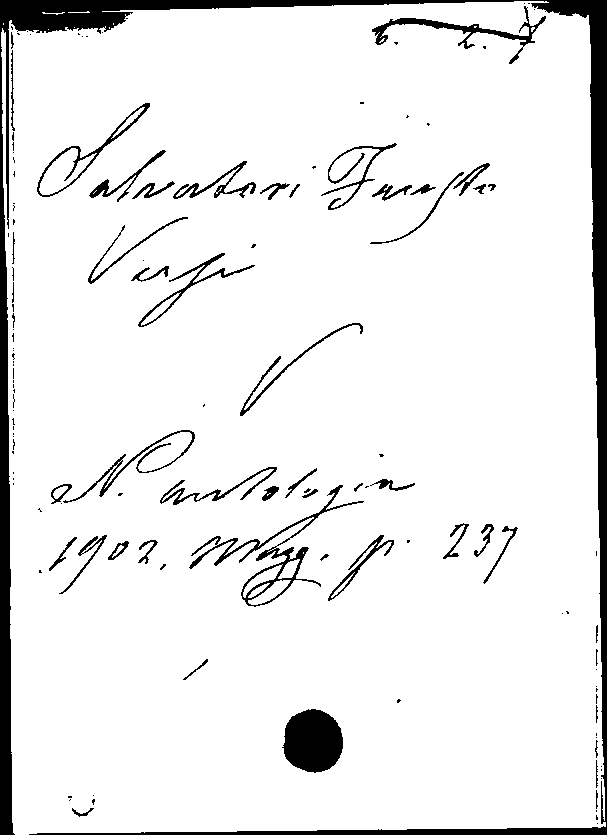 6. 2. 7
Salvatori Fausto
Versi
V
N. antologia
1902. Magg. p. 237